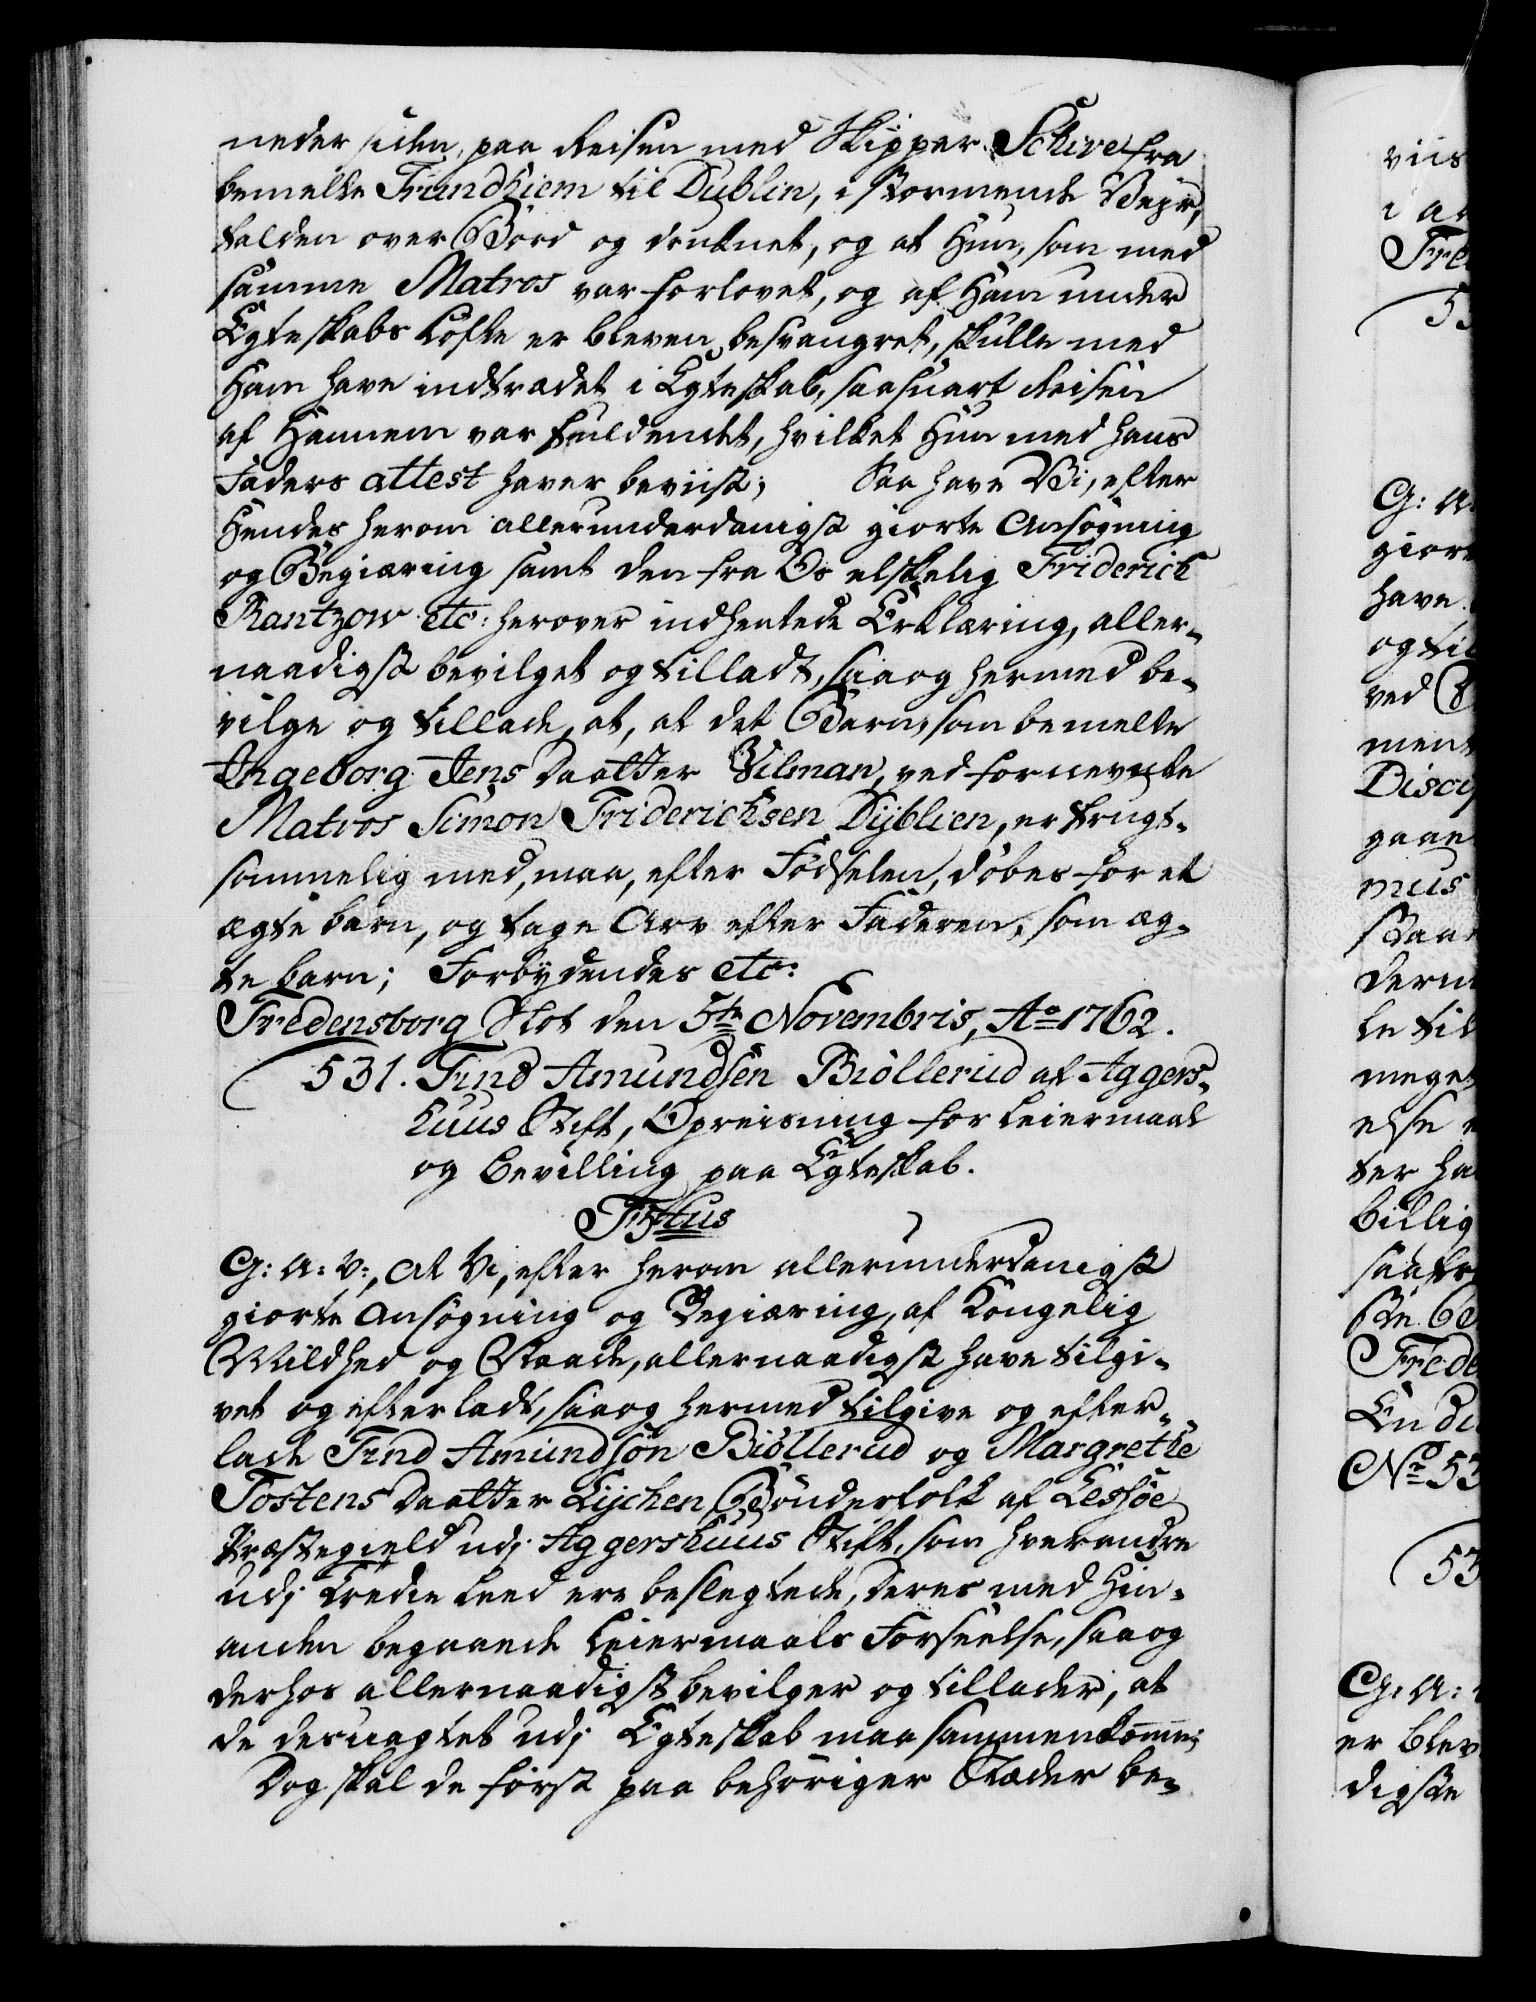 neder siden, paa Reisen med Skipper Schive fra
bemelte Trundhiem til Dublin, i stormende Vejr,
falden over Bord og druknet, og at Hun, som med
samme Matros var forlovet, og af Ham under
Egteskabs Løfte er bleven besvangret, skulle med
Ham have indtrædet i Egteskab, saasnart Reisen
af Hannem var fuldendt, hvilket Hun med hans
Faders attest haver beviist; Saa have Vi, efter
Hendes herom allerunderdanigst giorte Ansøgning
og Begiæring samt den fra Os elskelig Friderich
Rantzow etc: herover indhentede Erklæring, aller-
naadigst bevilget og tilladt, saa og hermed be-
vilge og tillade, at, at det Barn, som bemelte
Ingeborg Jens Daatter Vilman, ved fornevnte
Matros Simon Friderichsen Dijblien, er frugt-
sommelig med, maa, efter Fødselen, døbes for et
ægte barn, og tage Arv efter Faderen, som æg-
te barn; Forbydendes etc:
Fredensborg Slot den 5te Novembris, Ao 1762.
531. Find Amundsen Biøllerud af Aggers-
huus Stift, Opreisning for Leiermaal
og Bevilling paa Egteskab.
G: A: V:, At Vi, efter herom allerunderdanigst
giorte Ansøgning og Begiæring, af Kongelig
Mildhed og Naade, allernaadigst have tilgi-
vet og efterladt, saa og hermed tilgive og efter-
lade Find Amundsøn Biøllerud og Margrethe
Tostens Daatter Lijchen, Bønderfolk af Lessøe
Præstegield udj Aggershuus Stift, som hverandre
udj tredie Leed ere beslegtede, deres med Hin-
anden begaaede Leiermaals Forseelse, saa og
derhos allernaadigst bevilger og tillader, at
de desuagtet udj Egteskab maa sammenkomme;
Dog skal de først paa behøriger Stæder be-
viis
giort
have
og til
ved
Fre